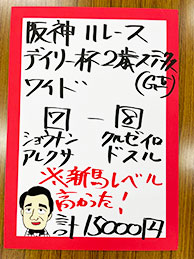 阪神11レース
デイリー杯2歳ステークス
(GⅡ)
ワイド
7-8
ショウナン クルゼイロ
アレクサ ドスル
※新馬レベル
高かった!
計15000円